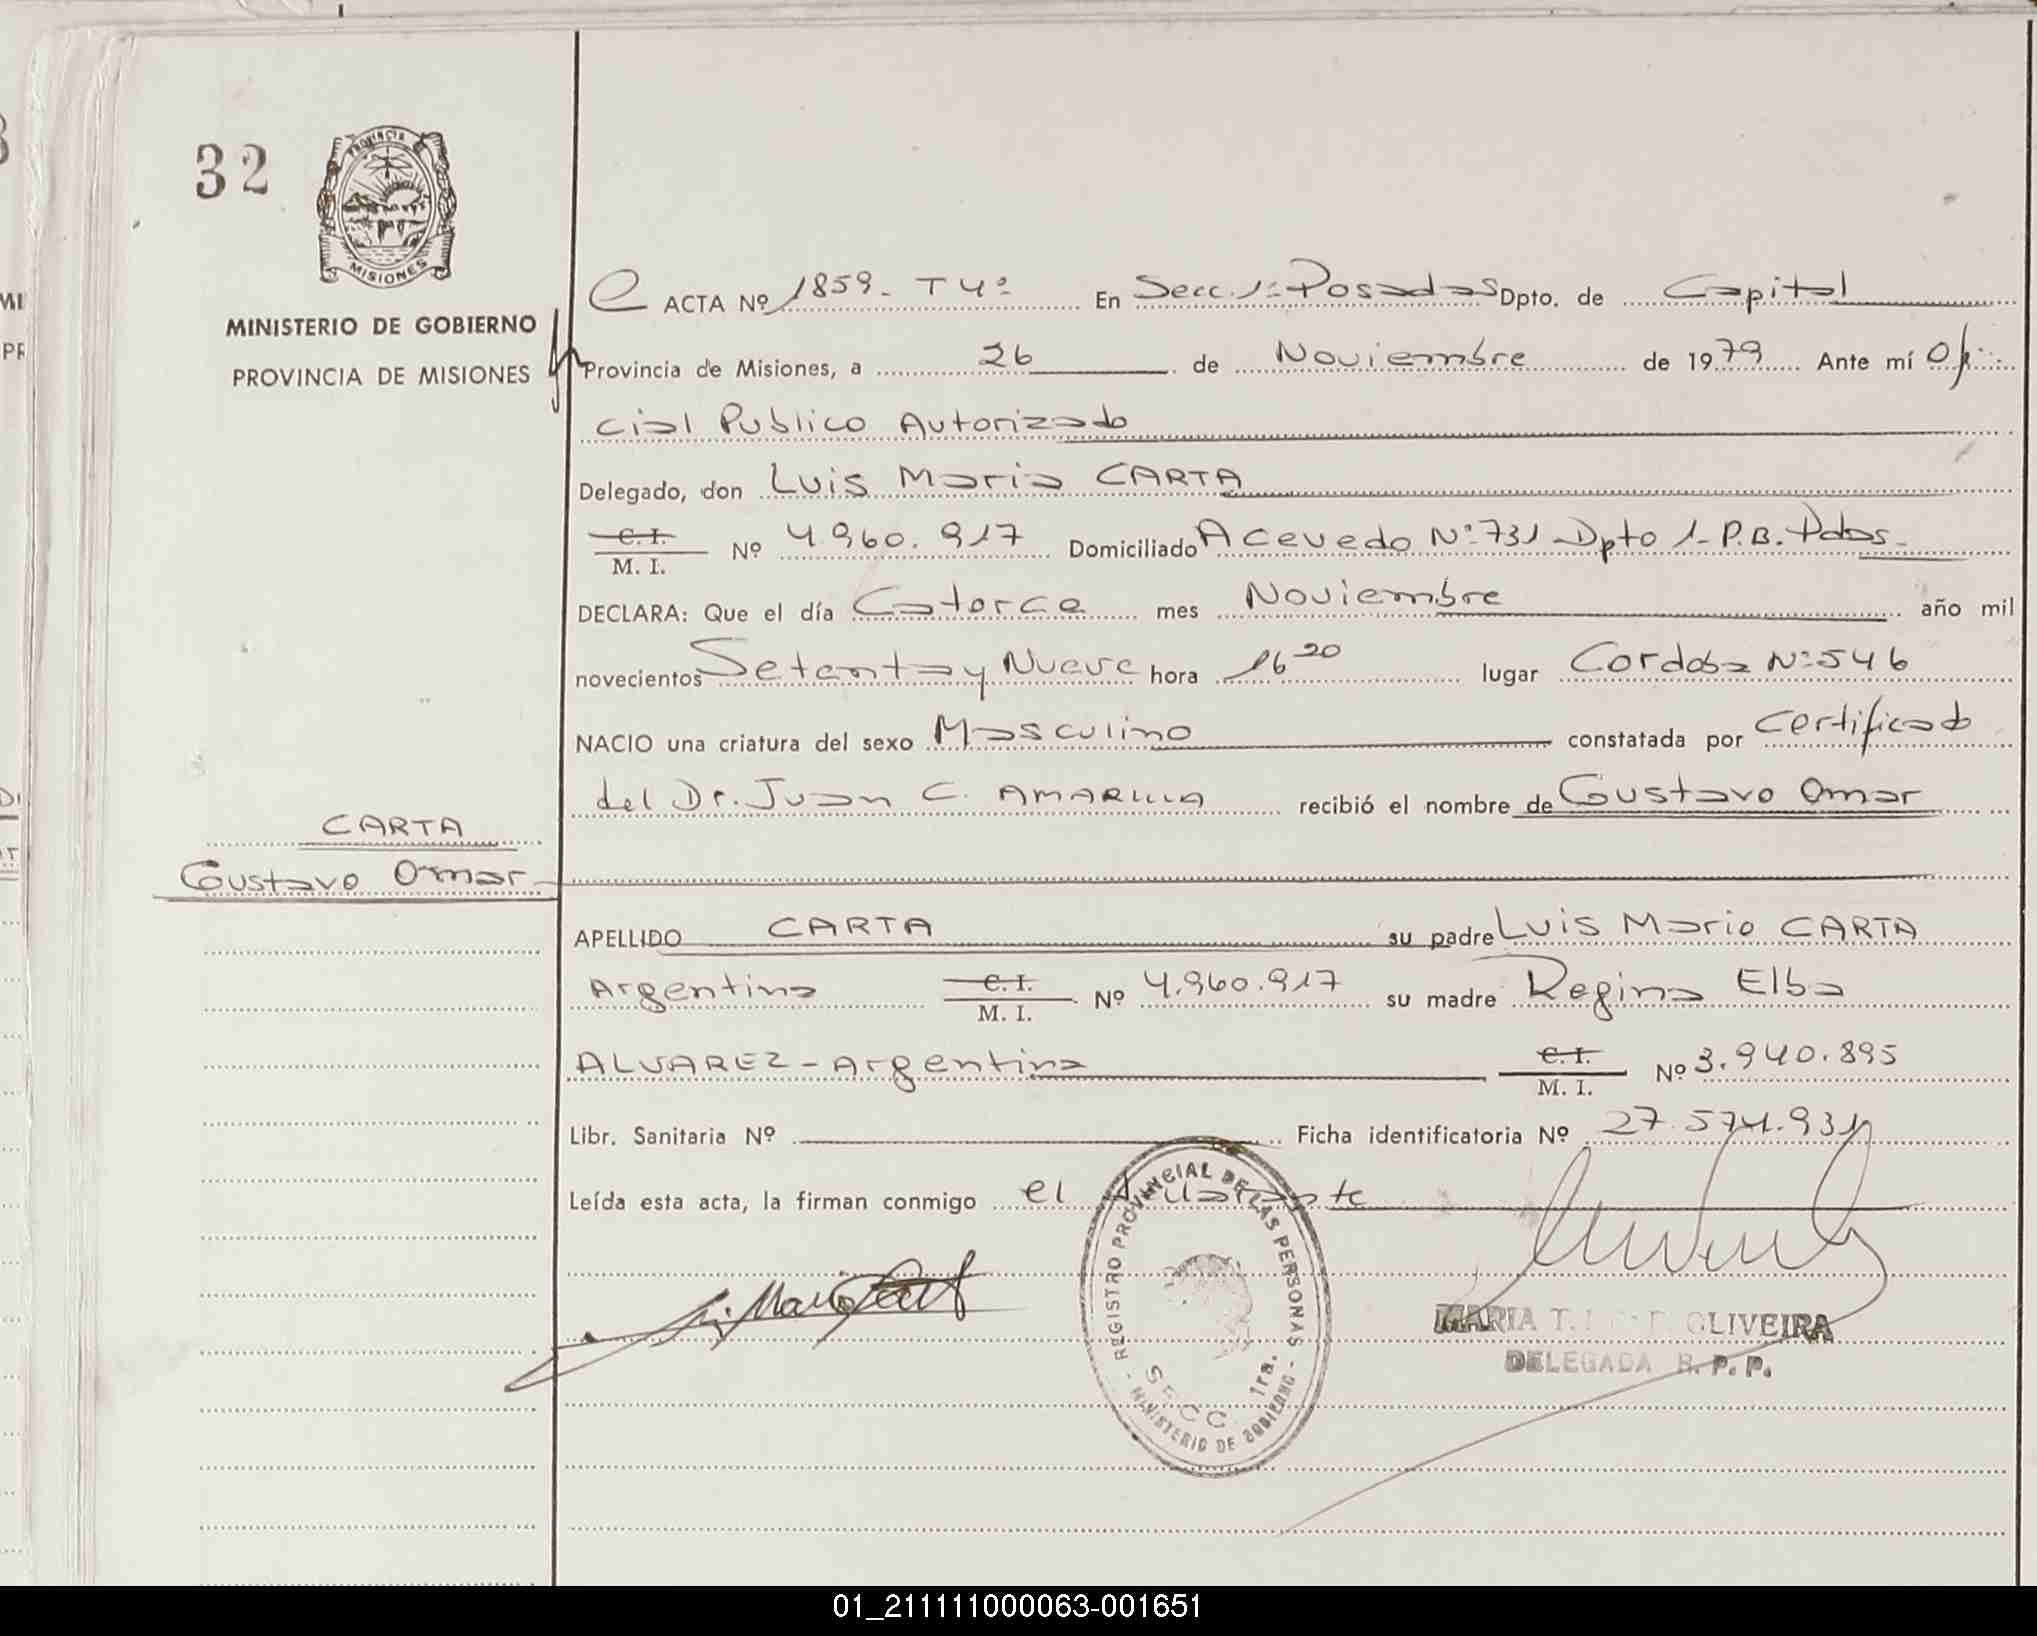 32
PROVINCIA
MISIONES
MINISTERIO DE GOBIERNO
PROVINCIA DE MISIONES
CARTA
Gustavo Omar
ACTA Nº 1859. T 4º En Secc. 1ª Posadas Dpto. de Capital
Provincia de Misiones, a 26 de Noviembre de 1979 Ante mí Ofi
cial Publico Autorizado
Delegado, don Luis Mario CARTA
C. I.
M. I. Nº 4.960.917 Domiciliado Acevedo Nº 731 Dpto 1- P.B. Pdas.
DECLARA: Que el día Catorce mes Noviembre año mil
novecientos Setenta y Nueve hora 16 20 lugar Cordoba Nº 546
NACIO una criatura del sexo Masculino constatada por Certificado
del Dr. Juan C. AMARILLA recibió el nombre de Gustavo Omar
APELLIDO CARTA su padre Luis Mario CARTA
Argentino C. I.
M. I. Nº 4.960.917 su madre Regina Elba
ALVAREZ - Argentina C. I.
M. I. Nº 3.940.895
Libr. Sanitaria Nº Ficha identificatoria Nº 27.574.931
Leída esta acta, la firman conmigo el
REGISTRO PROVINCIAL DE LAS PERSONAS
SECC. 1ra.
MINISTERIO DE GOBIERNO
MARIA T. OLIVEIRA
DELEGADA R. P. P.
01_211111000063-001651